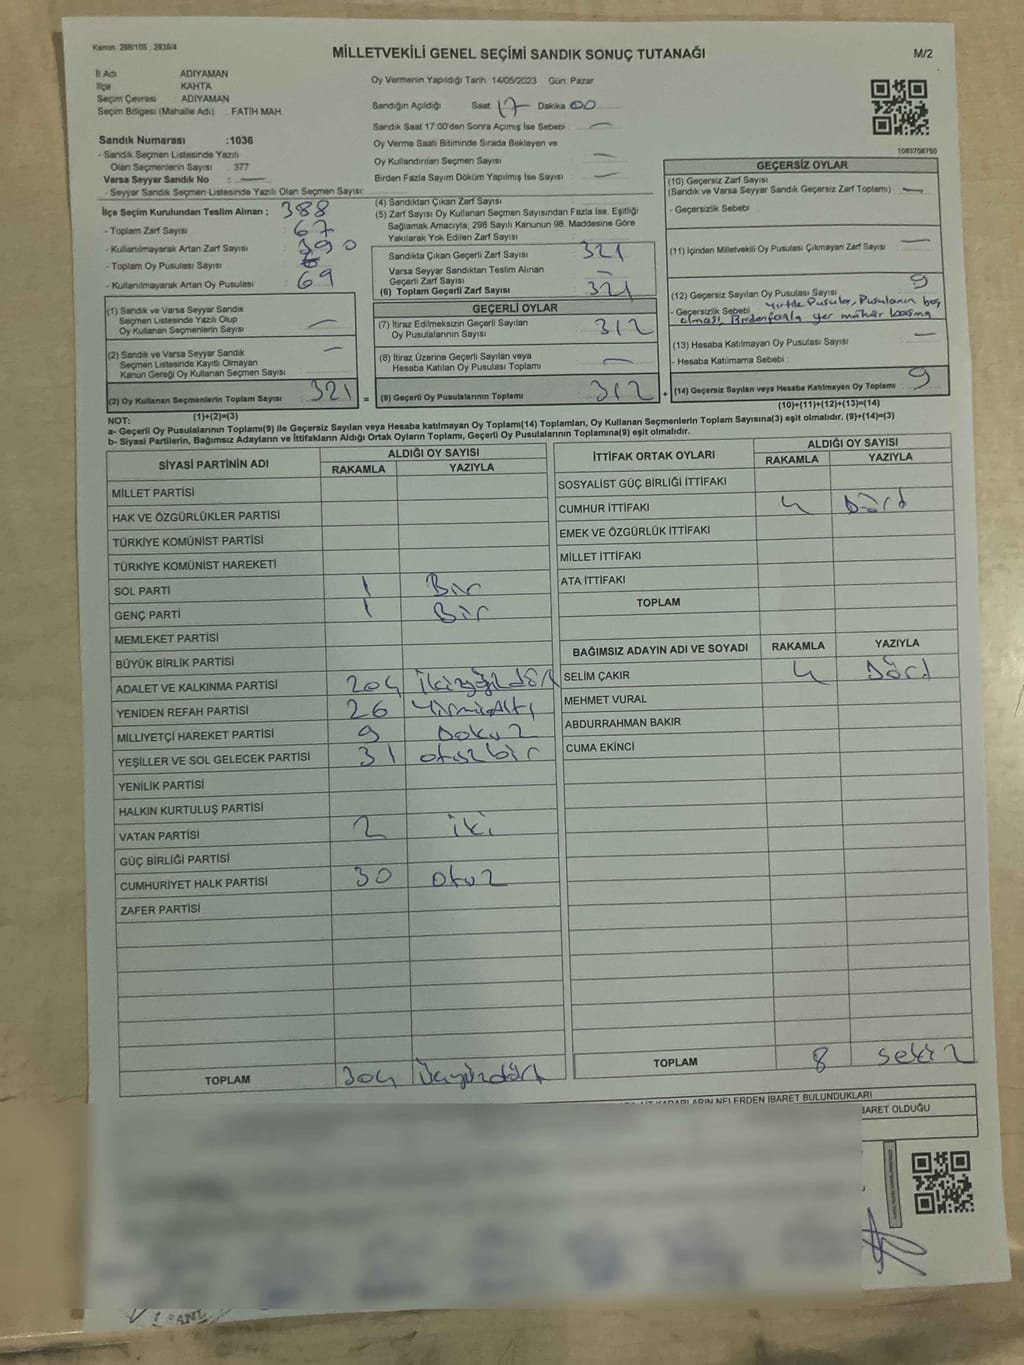 Kanun 298/105 , 2839/4
MİLLETVEKİLİ GENEL SEÇİMİ SANDIK SONUÇ TUTANAĞI
M/2
İl Adı ADIYAMAN
İlçe KAHTA
Seçim Çevresi : ADIYAMAN
Seçim Bölgesi (Mahalle Adı) : FATİH MAH
Oy Vermenin Yapıldığı Tarih 14/05/2023 Gün: Pazar
Sandığın Açıldığı Saat 17 Dakika 00
Sandık Saat 17.00'den Sonra Açımış İse Sebebi : —
Oy Verme Saati Bitiminde Sırada Bekleyen ve
Oy Kullandırılan Seçmen Sayısı —
Birden Fazla Sayım Döküm Yapılmış İse Sayısı : —
1083708750
Sandık Numarası :1036
- Sandık Seçmen Listesinde Yazılı
Olan Seçmenlerin Sayısı : 377
Varsa Seyyar Sandık No : —
- Seyyar Sandık Seçmen Listesinde Yazılı Olan Seçmen Sayısı:
İlçe Seçim Kurulundan Teslim Alınan ; 388
- Toplam Zarf Sayısı
- Kullanılmayarak Artan Zarf Sayısı : 67
- Toplam Oy Pusulası Sayısı : 390
- Kullanılmayarak Artan Oy Pusulası : 69
(1) Sandık ve Varsa Seyyar Sandık
Seçmen Listesinde Yazılı Olup
Oy Kullanan Seçmenlerin Sayısı : —
(2) Sandık ve Varsa Seyyar Sandık
Seçmen Listesinde Kayıtlı Olmayan
Kanun Gereği Oy Kullanan Seçmen Sayısı : —
(3) Oy Kullanan Seçmenlerin Toplam Sayısı : 321
(1)+(2)=(3)
(4) Sandıktan Çıkan Zarf Sayısı
(5) Zarf Sayısı Oy Kullanan Seçmen Sayısından Fazla İse, Eşitliği
Sağlamak Amacıyla, 298 Sayılı Kanunun 98. Maddesine Göre
Yakılarak Yok Edilen Zarf Sayısı
Sandıkta Çıkan Geçerli Zarf Sayısı 321
Varsa Seyyar Sandıktan Teslim Alınan
Geçerli Zarf Sayısı : —
(6) Toplam Geçerli Zarf Sayısı : 321
GEÇERLİ OYLAR
(7) İtiraz Edilmeksizin Geçerli Sayılan
Oy Pusulasının Sayısı : 312
(8) İtiraz Üzerine Geçerli Sayılan veya
Hesaba Katılan Oy Pusulası Toplamı : —
= (9) Geçerli Oy Pusulalarının Toplamı : 312
GEÇERSİZ OYLAR
(10) Geçersiz Zarf Sayısı
(Sandık ve Varsa Seyyar Sandık Geçersiz Zarf Toplamı) : —
- Geçersizlik Sebebi :
(11) İçinden Milletvekili Oy Pusulası Çıkmayan Zarf Sayısı : —
(12) Geçersiz Sayılan Oy Pusulası Sayısı : 9
- Geçersizlik Sebebi : Yırtık Pusula, Pusulanın boş
olması, Birden fazla yer mühür basma
(13) Hesaba Katılmayan Oy Pusulası Sayısı : —
- Hesaba Katılmama Sebebi :
+ (14) Geçersiz Sayılan veya Hesaba Katılmayan Oy Toplamı : 9
(10)+(11)+(12)+(13)=(14)
NOT:
a- Geçerli Oy Pusulalarının Toplamı(9) ile Geçersiz Sayılan veya Hesaba katılmayan Oy Toplamı(14) Toplamları, Oy Kullanan Seçmenlerin Toplam Sayısına(3) eşit olmalıdır. (9)+(14)=(3)
b- Siyasi Partilerin, Bağımsız Adayların ve İttifakların Aldığı Ortak Oyların Toplamı, Geçerli Oy Pusulalarının Toplamına(9) eşit olmalıdır.
SİYASİ PARTİNİN ADI ALDIĞI OY SAYISI
RAKAMLA YAZIYLA
MİLLET PARTİSİ
HAK VE ÖZGÜRLÜKLER PARTİSİ
TÜRKİYE KOMÜNİST PARTİSİ
TÜRKİYE KOMÜNİST HAREKETİ
SOL PARTİ 1 Bir
GENÇ PARTİ 1 Bir
MEMLEKET PARTİSİ
BÜYÜK BİRLİK PARTİSİ
ADALET VE KALKINMA PARTİSİ 204 ikiyüzdört
YENİDEN REFAH PARTİSİ 26 Yirmialtı
MİLLİYETÇİ HAREKET PARTİSİ 9 Dokuz
YEŞİLLER VE SOL GELECEK PARTİSİ 31 otuzbir
YENİLİK PARTİSİ
HALKIN KURTULUŞ PARTİSİ
VATAN PARTİSİ 2 iki
GÜÇ BİRLİĞİ PARTİSİ
CUMHURİYET HALK PARTİSİ 30 otuz
ZAFER PARTİSİ
TOPLAM 304 üçyüzdört
İTTİFAK ORTAK OYLARI ALDIĞI OY SAYISI
RAKAMLA YAZIYLA
SOSYALİST GÜÇ BİRLİĞİ İTTİFAKI
CUMHUR İTTİFAKI 4 Dörd
EMEK VE ÖZGÜRLÜK İTTİFAKI
MİLLET İTTİFAKI
ATA İTTİFAKI
TOPLAM
BAĞIMSIZ ADAYIN ADI VE SOYADI RAKAMLA YAZIYLA
SELİM ÇAKIR 4 Dörd
MEHMET VURAL
ABDURRAHMAN BAKIR
CUMA EKİNCİ
TOPLAM 8 sekiz
KARARLARIN NELERDEN İBARET BULUNDUKLARI
İBARET OLDUĞU